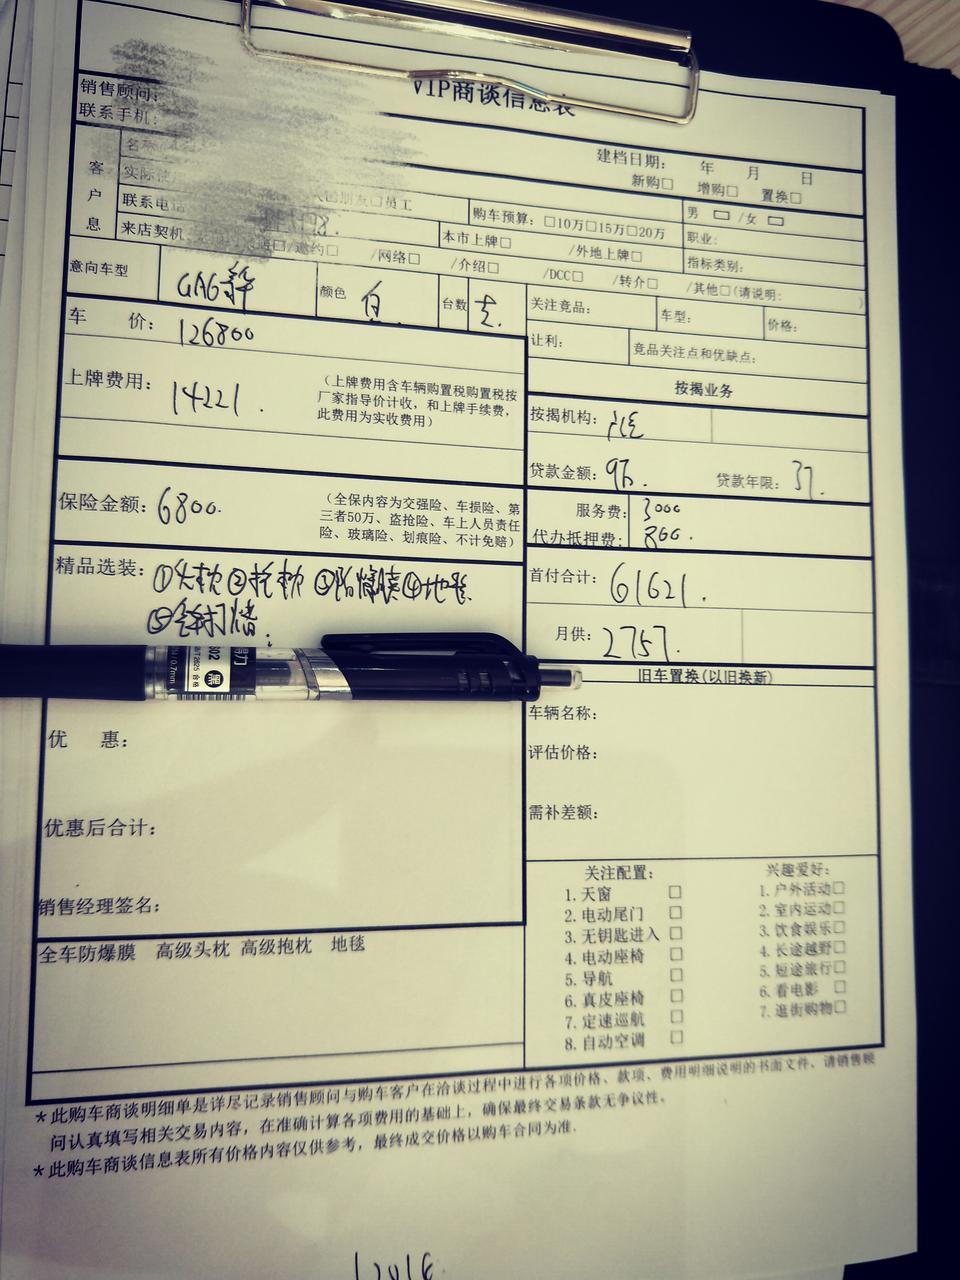 VIP商谈信息表
销售顾问：
联系手机：
建档日期： 年 月 日
新购□ 增购□ 置换□
客户 息
名称
实际使
朋友□员工
购车预算：□10万□15万□20万
男 □ /女 □
联系电话
本市上牌□ /外地上牌□
职业：
来店契机 /邀约□ /网络□ /介绍□ /DCC□ /转介□ /其他□(请说明： )
指标类别：
意向车型 GA6
颜色 白
台数
关注竞品： 车型： 价格：
车 价：126800
让利： 竞品关注点和优缺点：
按揭业务
上牌费用：14221.
（上牌费用含车辆购置税购置税按
厂家指导价计收，和上牌手续费，
此费用为实收费用）
按揭机构：
贷款金额：9万 贷款年限：3
保险金额：6800.
（全保内容为交强险、车损险、第
三者50万、盗抢险、车上人员责任
险、玻璃险、划痕险、不计免赔）
服务费：3000
代办抵押费：800.
精品选装：①头枕②抱枕③防爆膜④地毯
⑤
首付合计：61621.
月供：2757.
旧车置换(以旧换新)
车辆名称：
优 惠：
评估价格：
需补差额：
优惠后合计：
销售经理签名：
关注配置： 兴趣爱好：
1.天窗 □ 1.户外活动□
2.电动尾门 □ 2.室内运动□
3.无钥匙进入 □ 3.饮食娱乐□
4.电动座椅 □ 4.长途越野□
5.导航 □ 5.短途旅行□
6.真皮座椅 □ 6.看电影 □
7.定速巡航 □ 7.逛街购物□
8.自动空调 □
全车防爆膜 高级头枕 高级抱枕 地毯
*此购车商谈明细单是详尽记录销售顾问与购车客户在洽谈过程中进行各项价格、款项、费用明细说明的书面文件，请销售顾
问认真填写相关交易内容，在准确计算各项费用的基础上，确保最终交易条款无争议性。
*此购车商谈信息表所有价格内容仅供参考，最终成交价格以购车合同为准.